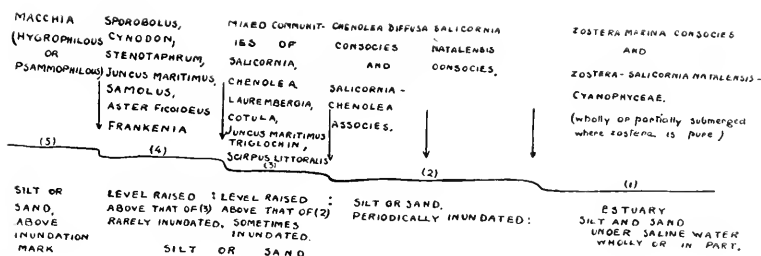 MACCHIA
(HYGROPHILOUS
OR
PSAMMOPHILOUS)
SPOROBOLUS,
CYNODON,
STENOTAPHRUM,
JUNCUS MARITIMUS,
SAMOLUS,
ASTER FICOIDEUS
FRANKENIA
MIXED COMMUNIT-
IES OF
SALICORNIA,
CHENOLEA
LAUREMBERGIA,
COTULA,
JUNCUS MARITIMUS
TRIGLOCHIN,
SCIRPUS LITTORALIS
CHENOLEA DIFFUSA
CONSOCIES
AND
SALICORNIA -
CHENOLEA
ASSOCIES.
SALICORNIA
NATALENSIS
CONSOCIES.
ZOSTERA MARINA CONSOCIES
AND
ZOSTERA-SALICORNIA NATALENSIS-
CYANOPHYCEAE.
(wholly or partially submerged
where zostera is pure)
(5)
(4)
(3)
(2)
(1)
SILT OR
SAND,
ABOVE
INUNDATION
MARK
LEVEL RAISED :
ABOVE THAT OF (3)
RARELY INUNDATED.
LEVEL RAISED :
ABOVE THAT OF (2)
SOMETIMES
INUNDATED.
SILT OR SAND
SILT OR SAND.
PERIODICALLY INUNDATED:
ESTUARY
SILT AND SAND
UNDER SALINE WATER
WHOLLY OR IN PART.